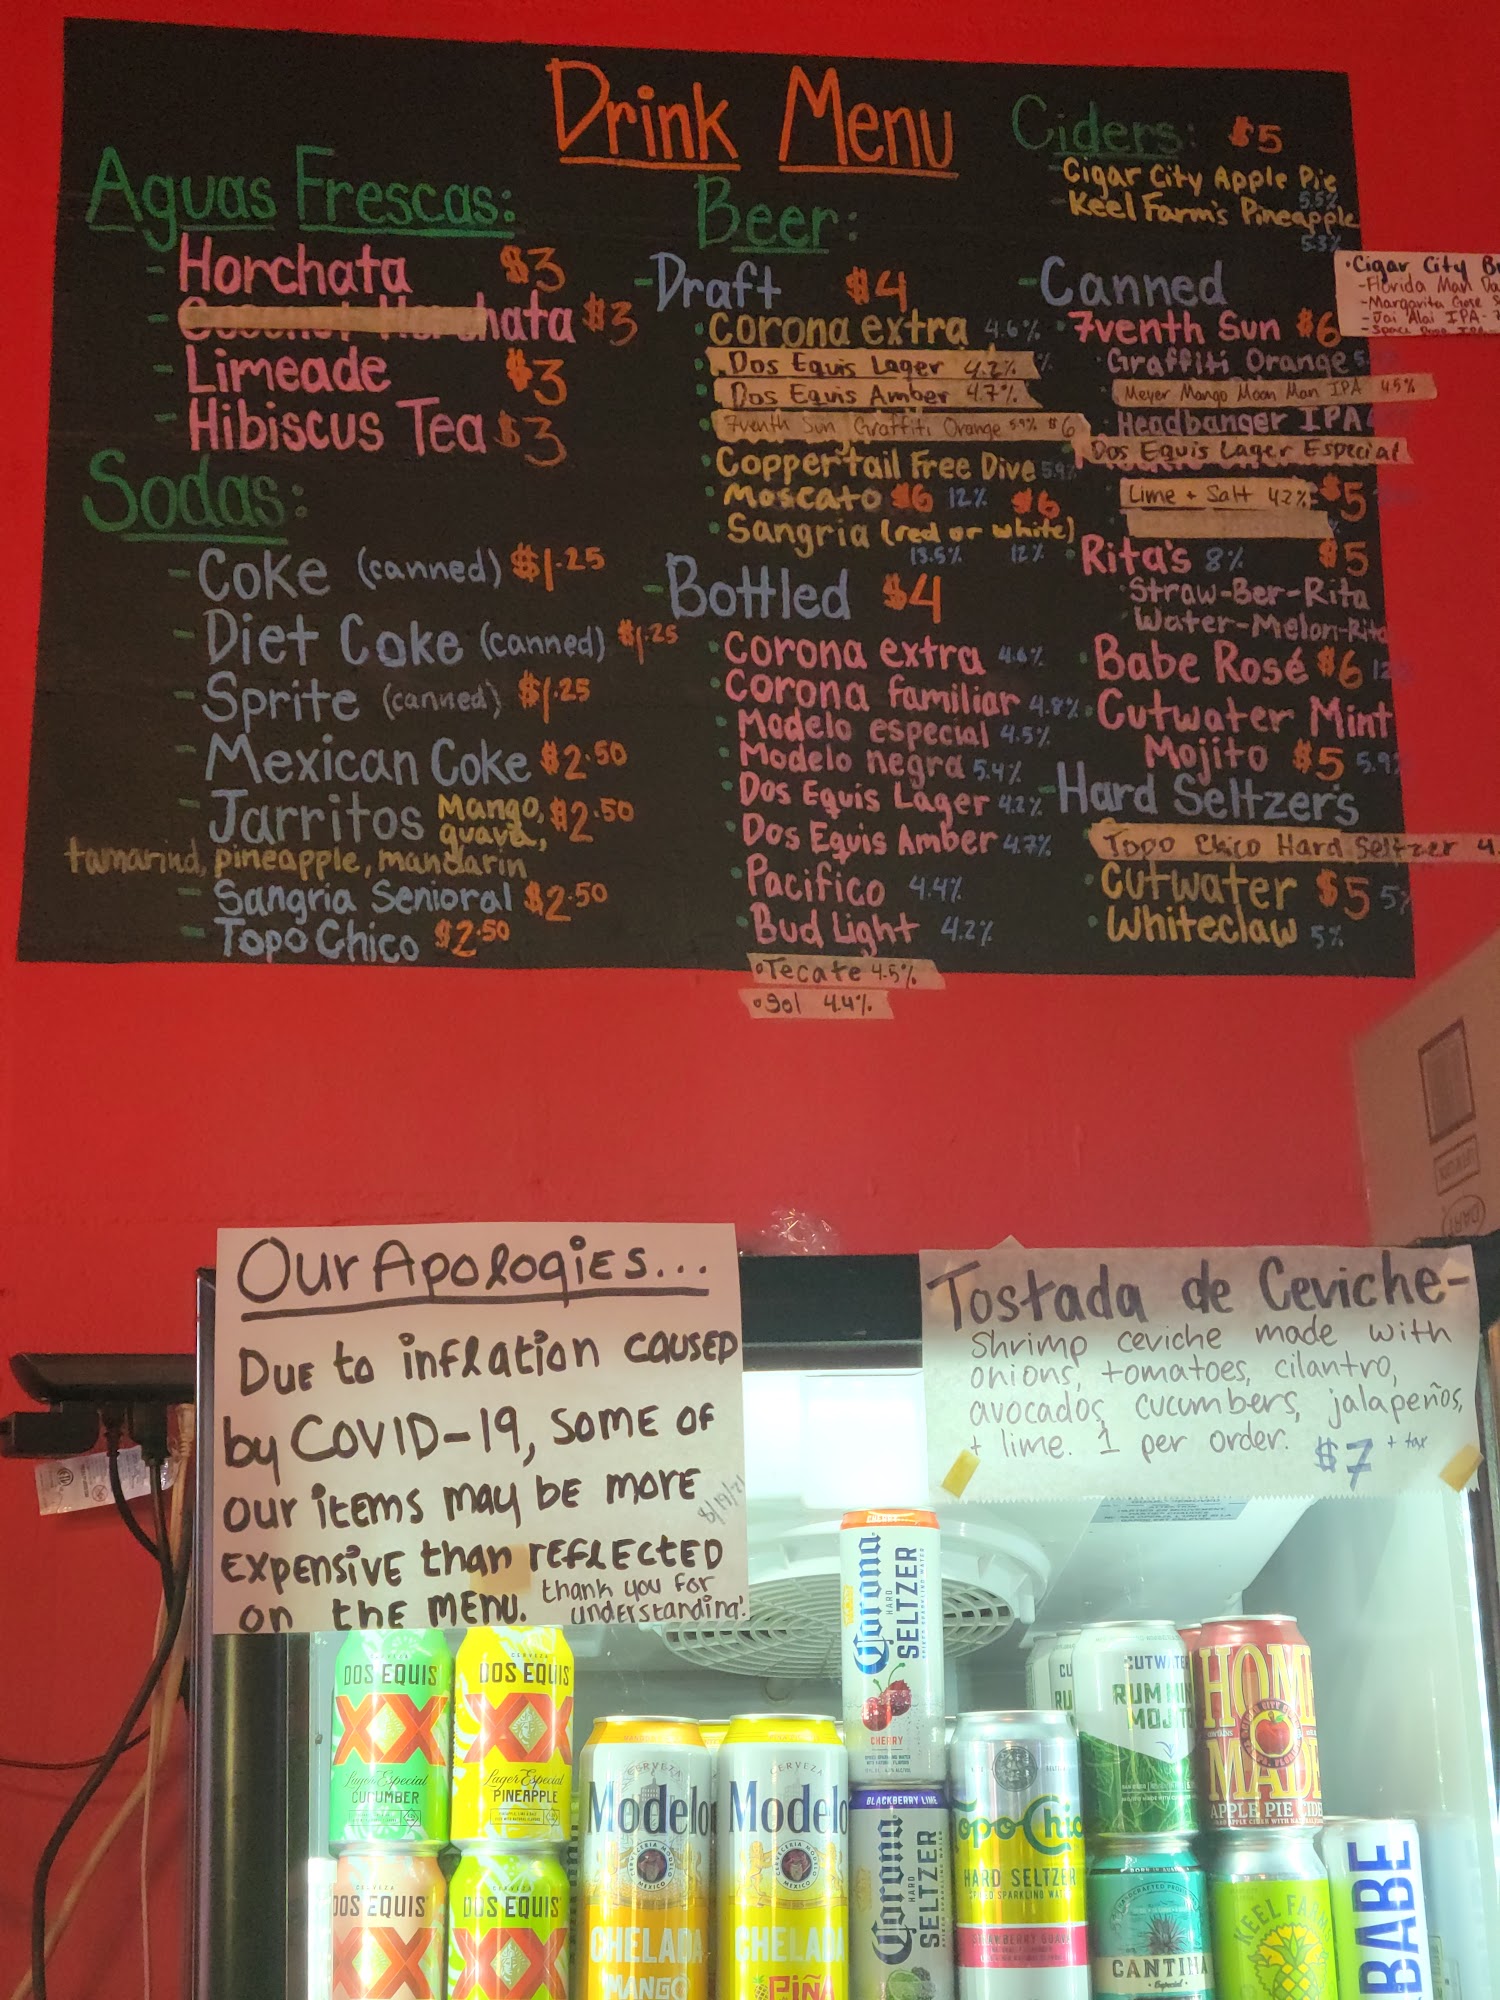 Drink Menu
Aguas Frescas:
- Horchata $3
- Coconut Horchata $3
- Limeade $3
- Hibiscus Tea $3
Sodas:
- Coke (canned) $1.25
- Diet Coke (canned) $1.25
- Sprite (canned) $1.25
- Mexican Coke $2.50
- Jarritos Mango, $2.50
guava,
tamarind, pineapple, mandarin
- Sangria Senioral $2.50
- Topo Chico $2.50
Beer:
- Draft $4
• Corona extra 4.6%
• Dos Equis Lager 4.2%
• Dos Equis Amber 4.7%
• 7venth Sun Graffiti Orange 5.9% $6
• Coppertail Free Dive 5.9%
• Moscato $6 12% $6
• Sangria (red or white)
13.5% 12%
- Bottled $4
• Corona extra 4.6%
• Corona familiar 4.8%
• Modelo especial 4.5%
• Modelo negra 5.4%
• Dos Equis Lager 4.2%
• Dos Equis Amber 4.7%
• Pacifico 4.4%
• Bud Light 4.2%
• Tecate 4.5%
• Sol 4.4%
Ciders: $5
- Cigar City Apple Pie
5.5%
- Keel Farm's Pineapple
5.3%
- Canned
• 7venth Sun $6
• Graffiti Orange
Meyer Mango Moon Man IPA 4.5%
Headbanger IPA
Dos Equis Lager Especial
Lime + Salt 4.2% $5
• Rita's 8% $5
• Straw-Ber-Rita
• Water-Melon-Rita
• Babe Rosé $6
• Cutwater Mint
Mojito $5 5.9
- Hard Seltzer's
Topo Chico Hard Seltzer
• Cutwater $5 5%
• Whiteclaw 5%
• Cigar City
- Florida Man
- Margarita Gose
- Jai Alai IPA
Our Apologies...
Due to inflation caused
by COVID-19, some of
our items may be more
expensive than reflected
on the menu. thank you for
understanding!
8/19/21
Tostada de Ceviche-
Shrimp ceviche made with
onions, tomatoes, cilantro,
avocados, cucumbers, jalapeños,
+ lime. 1 per order. $7 + tax
CERVEZA
DOS EQUIS
XX
Lager Especial
CUCUMBER
CERVEZA
DOS EQUIS
XX
Lager Especial
PINEAPPLE
CERVEZA
DOS EQUIS
XX
CERVEZA
DOS EQUIS
XX
CERVEZA
Modelo
CERVECERIA MODELO
MEXICO
CHELADA
MANGO
CERVEZA
Modelo
CERVECERIA MODELO
MEXICO
CHELADA
PIÑA
CHERRY
Corona
HARD
SELTZER
CHERRY
BLACKBERRY LIME
Corona
HARD
SELTZER
Topo Chico
HARD SELTZER
STRAWBERRY GUAVA
CUTWATER
RUM MINT
MOJITO
HOME
MADE
APPLE PIE CIDER
CANTINA
Especial
KEEL FARMS
BABE